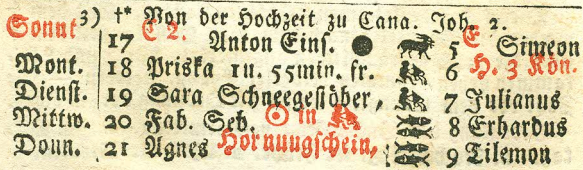 3) †* Von der Hochzeit zu Cana. Joh. 2.
Sonnt 17 C 2. Anton Eins. 5 E Simeon
Mont. 18 Priska 1 u. 55 min. fr. 6 H. 3 Kön.
Dienst. 19 Sara Schneegestöber, 7 Julianus
Mittw. 20 Fab. Seb. ☉ in 8 Erhardus
Donn. 21 Agnes Hornungschein, 9 Tilemon